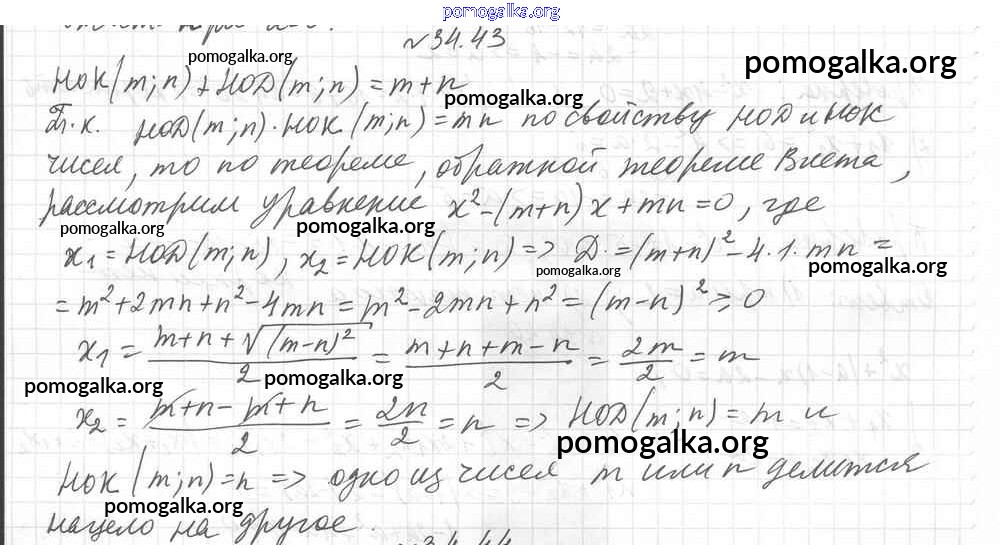 pomogalka.org
№34.43
pomogalka.org
pomogalka.org
НОК(m;n)+НОД(m;n)=m+n
pomogalka.org
Т.к. НОД(m;n)·НОК(m;n)=mn по свойству НОД и НОК
чисел, то по теореме, обратной теореме Виета,
pomogalka.org
рассмотрим уравнение x²-(m+n)x+mn=0, где
pomogalka.org
pomogalka.org
x₁=НОД(m;n), x₂=НОК(m;n)=> D=(m+n)²-4·1·mn=
pomogalka.org
pomogalka.org
=m²+2mn+n²-4mn=m²-2mn+n²=(m-n)²≥0
x₁=(m+n+√(m-n)²)/2=(m+n+m-n)/2=2m/2=m
pomogalka.org
pomogalka.org
x₂=(m+n-m+n)/2=2n/2=n => НОД(m;n)=m и
pomogalka.org
НОК(m;n)=n => одно из чисел m или n делится
pomogalka.org
нацело на другое.